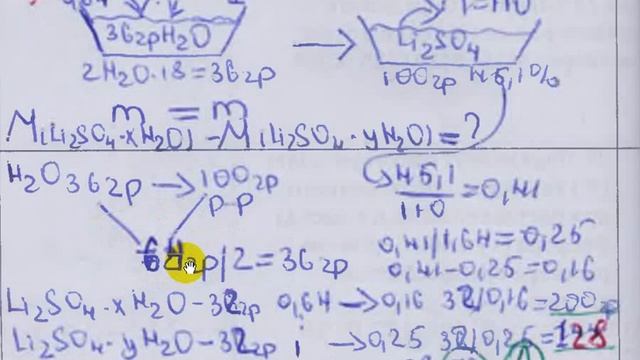 36грH2O
Li2SO4
2H2O·18=36гр
100гр 45,1%
m = m
M(Li2SO4·xH2O) - M(Li2SO4·yH2O) = ?
H2O 36гр → 100гр
р-р
45,1
110
=0,41
гр/2=36гр
0,41/1,64=0,25
0,41-0,25=0,16
Li2SO4·xH2O-32гр 0,64→0,16 32/0,16=200гр
Li2SO4·yH2O-32гр 1→0,25 32/0,25=128